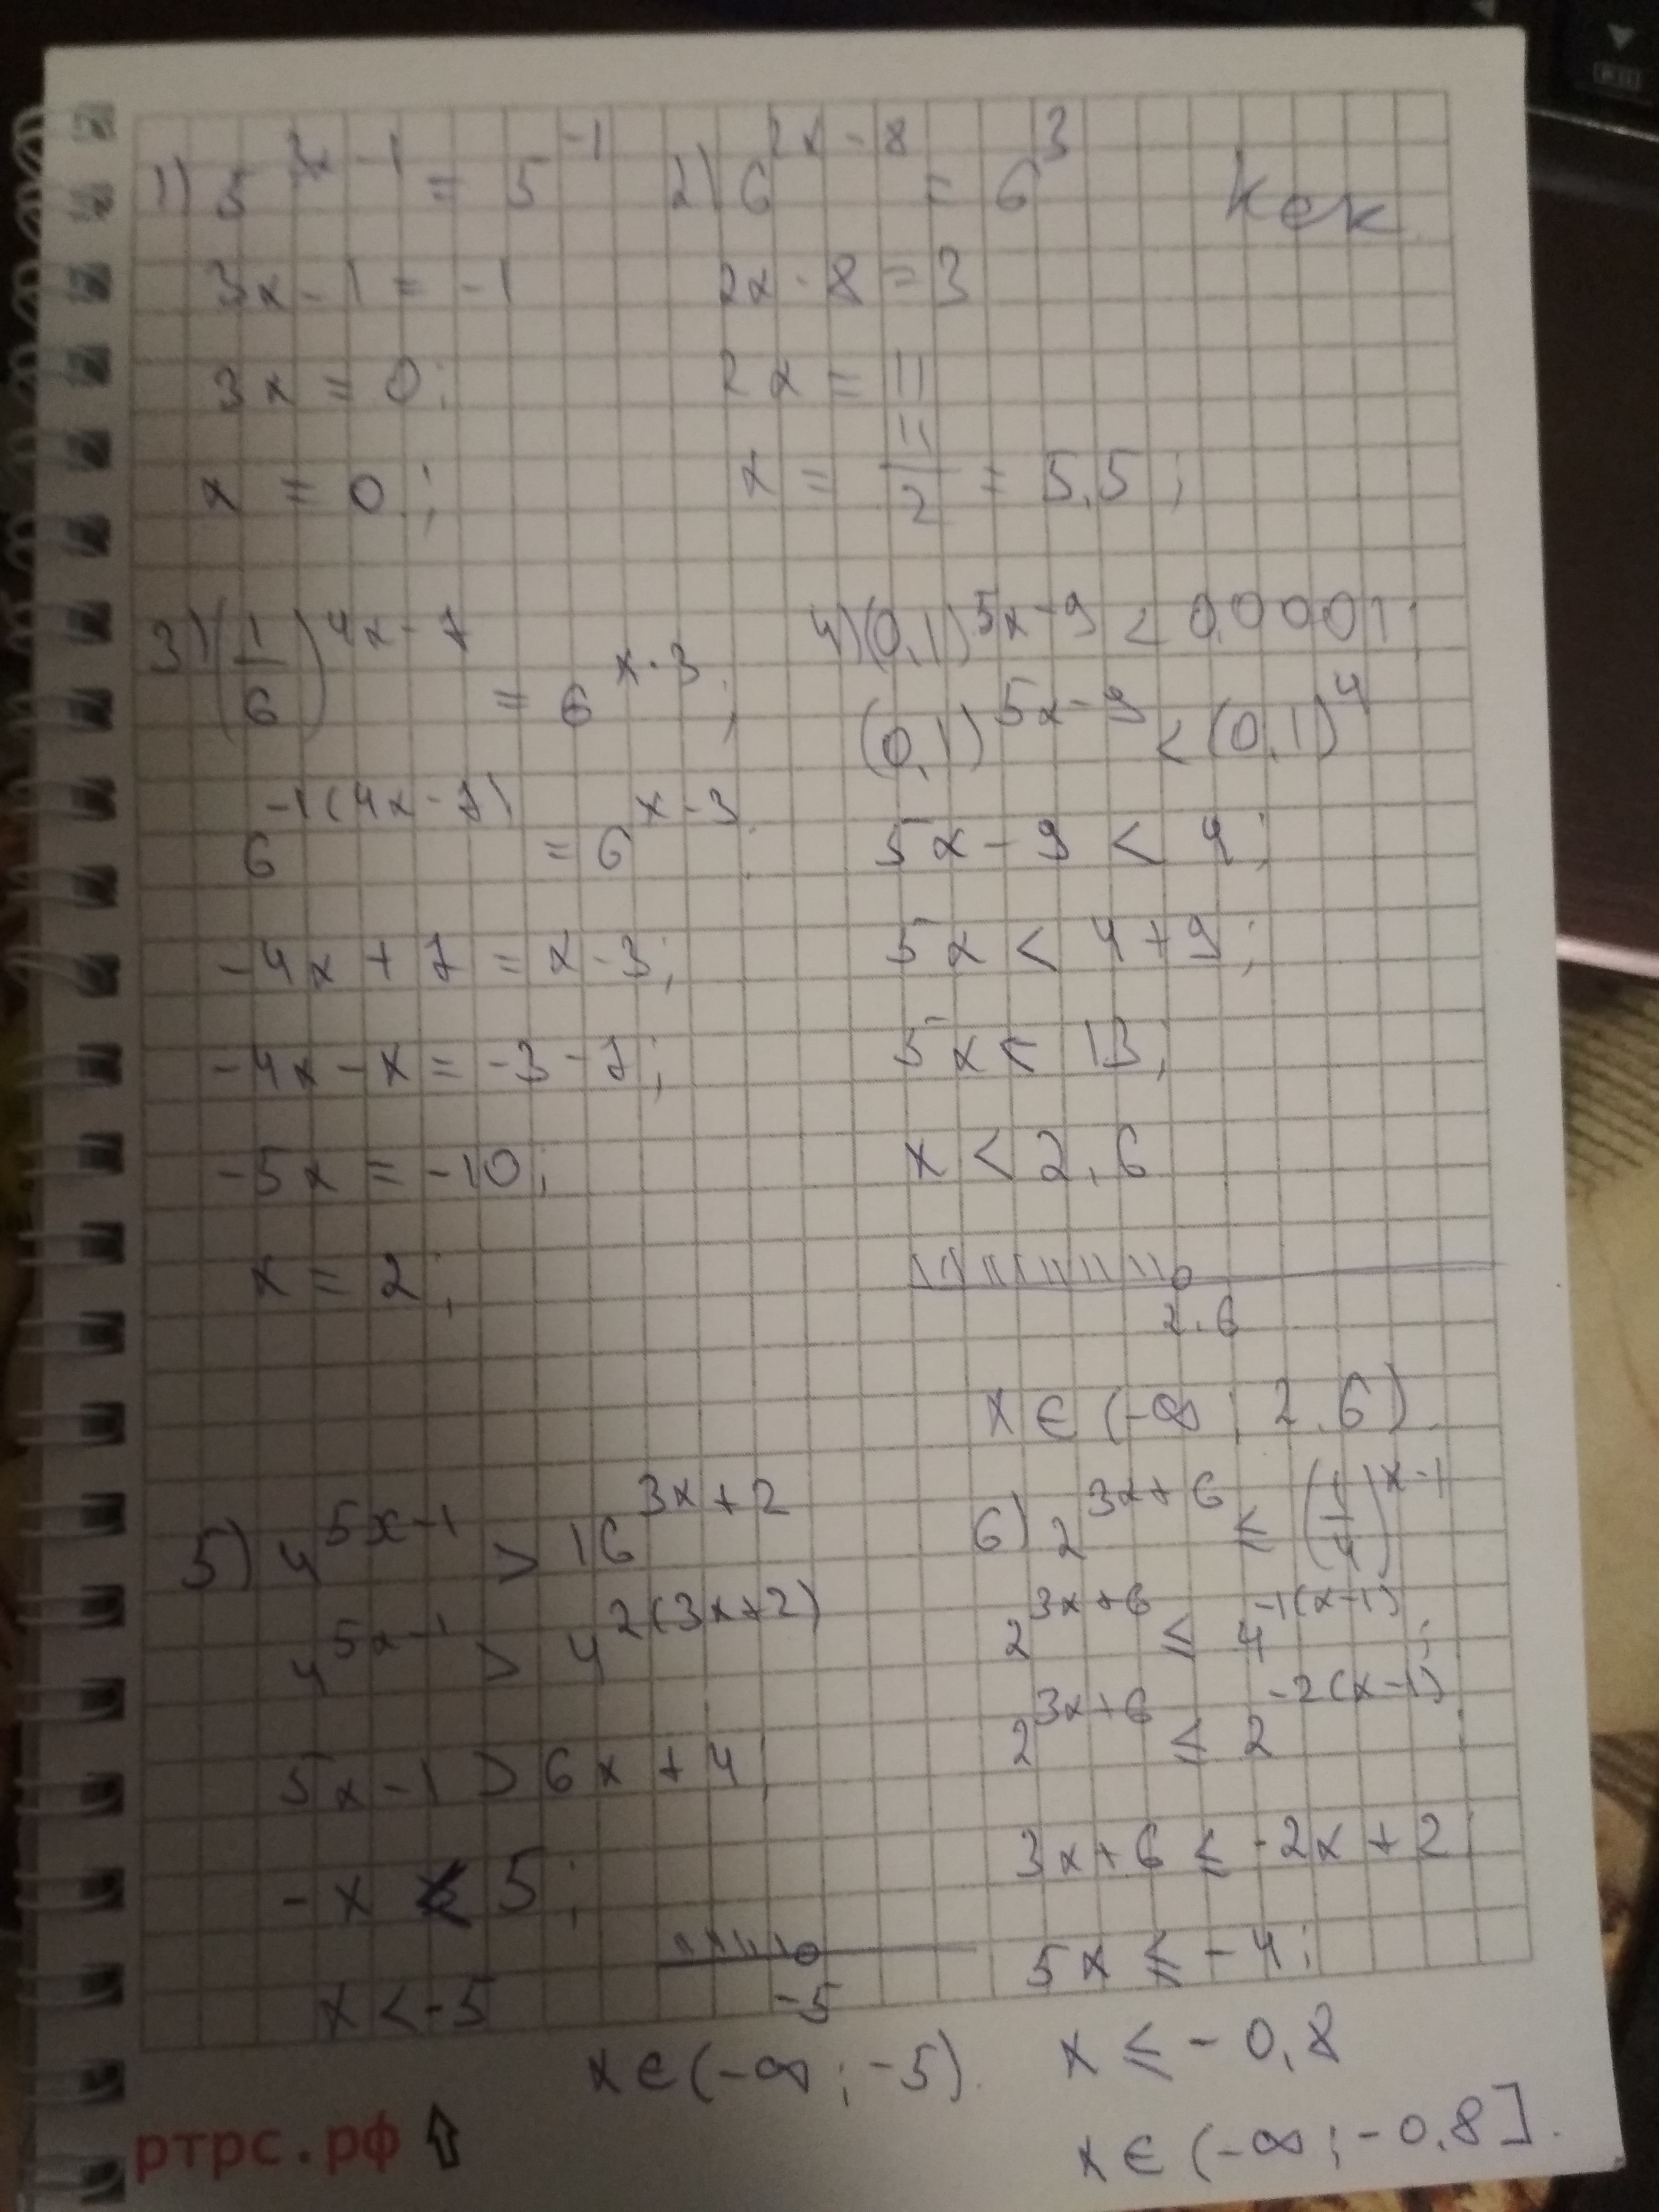 1) 5^(3x-1) = 5^(-1)
3x - 1 = -1
3x = 0;
x = 0;
2) 6^(2x-8) = 6^3
2x - 8 = 3
2x = 11
x = 11/2 = 5,5;
Кек
3) (1/6)^(4x-7) = 6^(x-3);
6^(-1(4x-7)) = 6^(x-3)
-4x + 7 = x - 3;
-4x - x = -3 - 7;
-5x = -10;
x = 2;
4) (0,1)^(5x-9) < 0,0001;
(0,1)^(5x-9) < (0,1)^4
5x - 9 < 4;
5x < 4 + 9;
5x < 13;
x < 2,6
2.6
x ∈ (-∞; 2,6).
5) 4^(5x-1) > 16^(3x+2)
4^(5x-1) > 4^(2(3x+2))
5x - 1 > 6x + 4;
-x 5;
x < -5
-5
x ∈ (-∞; -5).
6) 2^(3x+6) ≤ (1/4)^(x-1)
2^(3x+6) ≤ 4^(-1(x-1));
2^(3x+6) ≤ 2^(-2(x-1));
3x + 6 ≤ -2x + 2;
5x ≤ -4;
x ≤ -0,8
x ∈ (-∞; -0,8].
ртрс.рф